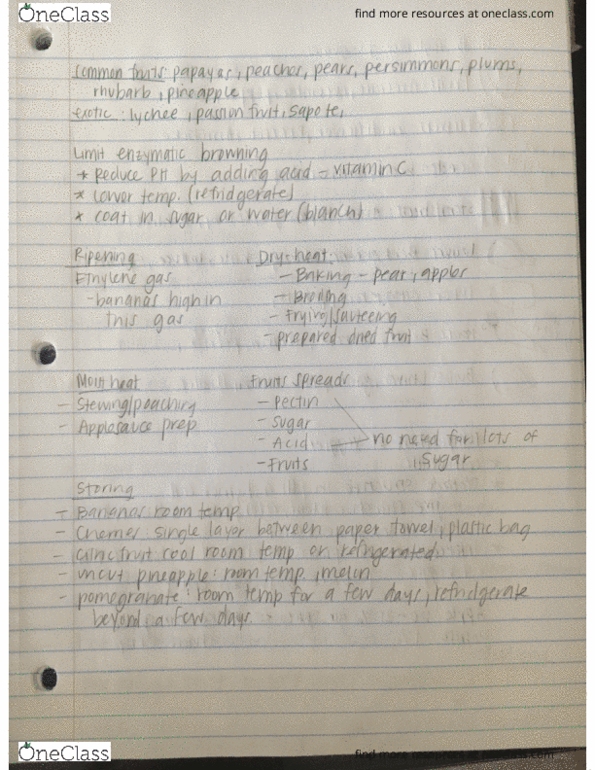 OneClass
find more resources at oneclass.com
common fruits: papayas, peaches, pears, persimmons, plums,
rhubarb, pineapple
exotic: lychee, passion fruit, sapote,
Limit enzymatic browning
* Reduce PH by adding acid - vitamin C
* Lower temp. (refridgerate)
* coat in sugar or water (blanch)
Ripening
Ethylene gas
- bananas high in
this gas
Dry-heat:
- Baking - pear, apples
- Broiling
- Frying/sauteeing
- prepared dried fruit
Moist heat
- Stewing/poaching
- Applesauce prep
Fruits spreads
- Pectin
- Sugar
- Acid
- Fruits
no need for lots of
sugar
Storing
- Bananas room temp
- Cherries single layer between paper towel, plastic bag
- Citric fruit cool room temp or refrigerated
- uncut pineapple: room temp, melon
- pomegranate: room temp for a few days, refridgerate
beyond a few days
OneClass
find more resources at oneclass.com